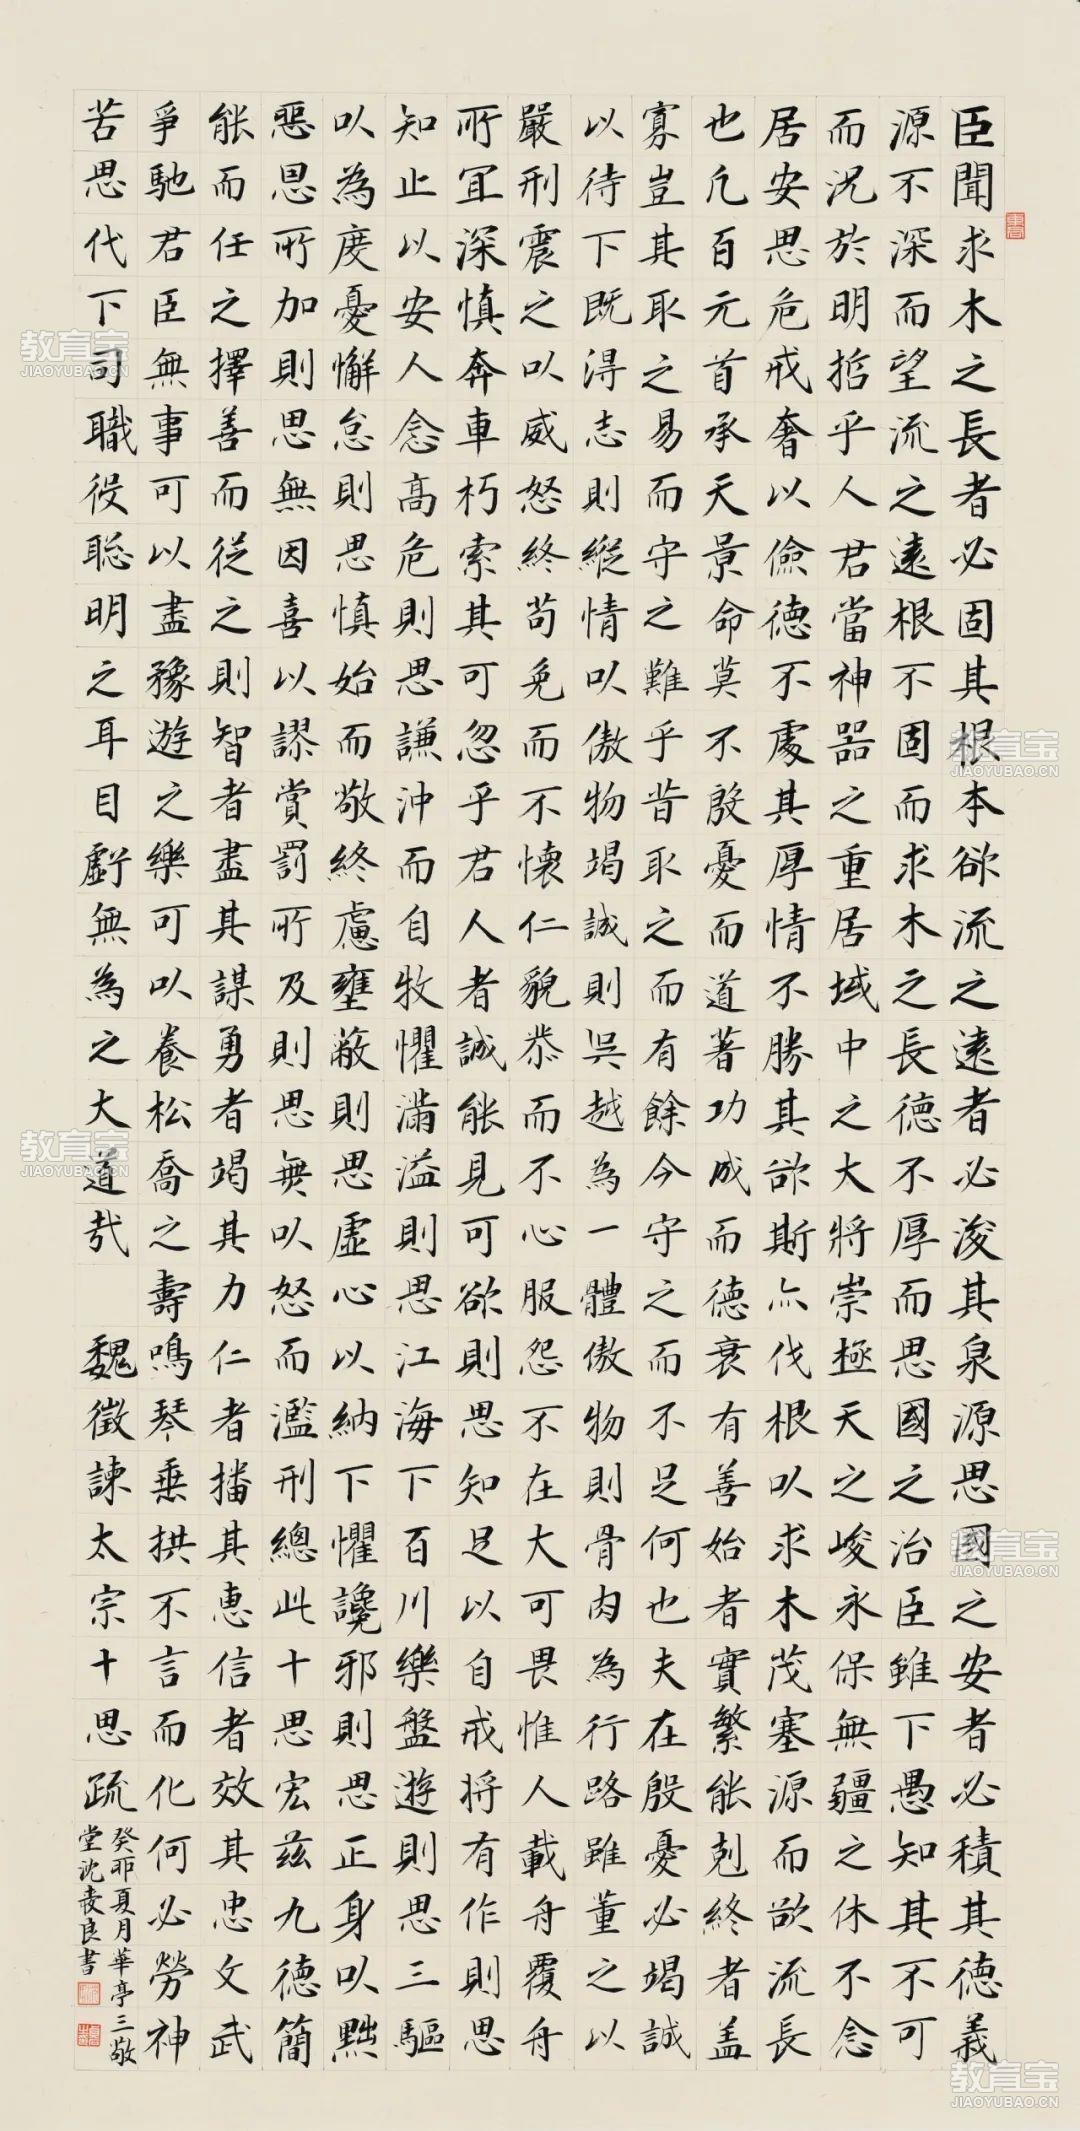 臣聞求木之長者必固其根本欲流之遠者必浚其泉源思國之安者必積其德義
源不深而望流之遠根不固而求木之長德不厚而思國之治臣雖下愚知其不可
而況於明哲乎人君當神器之重居域中之大將崇極天之峻永保無疆之休不念
居安思危戒奢以儉德不處其厚情不勝其欲斯亦伐根以求木茂塞源而欲流長
也凡百元首承天景命莫不殷憂而道著功成而德衰有善始者實繁能剋終者盖
寡豈其取之易而守之難乎昔取之而有餘今守之而不足何也夫在殷憂必竭誠
以待下既得志則縱情以傲物竭誠則吳越為一體傲物則骨肉為行路雖董之以
嚴刑震之以威怒終苟免而不懷仁貌恭而不心服怨不在大可畏惟人載舟覆舟
所宜深慎奔車朽索其可忽乎君人者誠能見可欲則思知足以自戒將有作則思
知止以安人念高危則思謙沖而自牧懼滿溢則思江海下百川樂盤遊則思三驅
以為度憂懈怠則思慎始而敬終慮壅蔽則思虛心以納下懼讒邪則思正身以黜
惡恩所加則思無因喜以謬賞罰所及則思無以怒而濫刑總此十思宏茲九德簡
能而任之擇善而從之則智者盡其謀勇者竭其力仁者播其惠信者效其忠文武
爭馳君臣無事可以盡豫遊之樂可以養松喬之壽鳴琴垂拱不言而化何必勞神
苦思代下司職役聰明之耳目虧無為之大道哉 魏徵諫太宗十思疏
癸卯夏月華亭三敬
堂沈良書
教育宝
JIAOYUBAO.CN
教育宝
JIAOYUBAO.CN
教育宝
JIAOYUBAO.CN
教育宝
JIAOYUBAO.CN
教育宝
JIAOYUBAO.CN